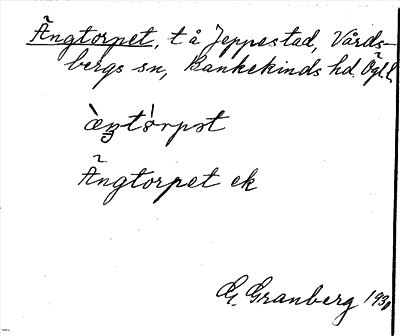 Ängtorpet, t å Jeppestad, Vårds-
bergs sn, Bankekinds hd Ögl.
Ängtorpet ek
G. Granberg 1930